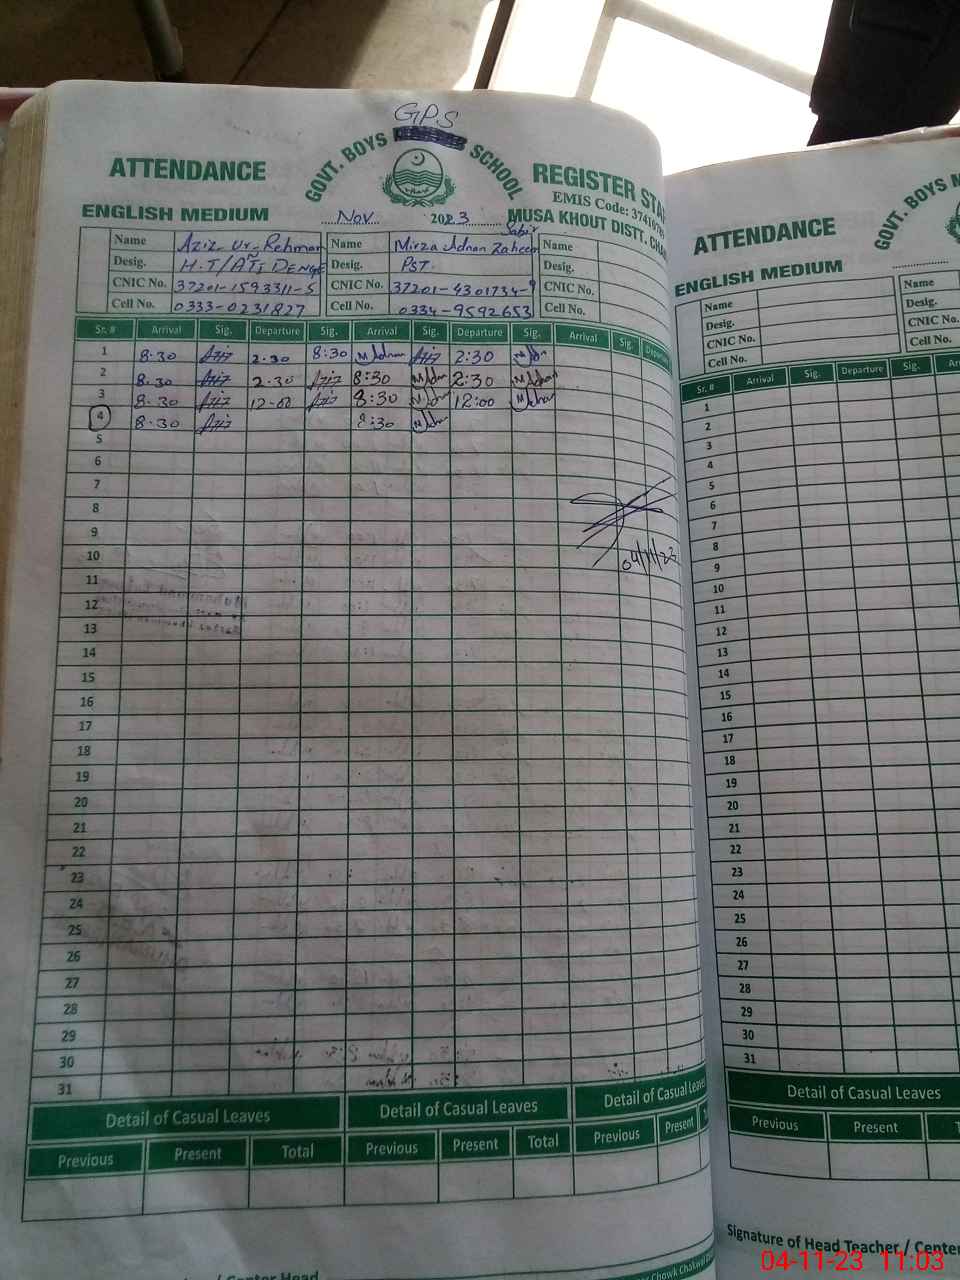 GPS
GOVT. BOYS SCHOOL
ATTENDANCE REGISTER STA
EMIS Code: 3741
ENGLISH MEDIUM Nov 2023 MUSA KHOUT DISTT. CHA
Sabir
Name Aziz-Ur-Rehman Name Mirza Adnan Zaheer Name
Desig. H.T/ Desig. PST. Desig.
CNIC No. 37201-1593311-5 CNIC No. 37201-4301734-9 CNIC No.
Cell No. 0333-0231827 Cell No. 0334-9592653 Cell No.
Sr. # Arrival Sig. Departure Sig. Arrival Sig. Departure Sig. Arrival Sig. Departu
1 8.30 Aziz 2.30 8:30 M Adnan Aziz 2:30
2 8.30 Aziz 2.30 Aziz 8:30 M Adnan 2:30 M Adnan
3 8.30 Aziz 12.00 Aziz 8:30 M Adnan 12:00 M Adnan
4 8.30 Aziz 8:30 M Adnan
5
6
7
8
9
10
04/11/23
11
12
13
14
15
16
17
18
19
20
21
22
23
24
25
26
27
28
29
30
31
Detail of Casual Leaves Detail of Casual Leaves Detail of Casual Leaves
Previous Present Total Previous Present Total Previous Present
Chowk Chakwal
GOVT. BOYS
ATTENDANCE
ENGLISH MEDIUM
Name Name
Desig. Desig.
CNIC No. CNIC No.
Cell No. Cell No.
Sr. # Arrival Sig. Departure Sig.
1
2
3
4
5
6
7
8
9
10
11
12
13
14
15
16
17
18
19
20
21
22
23
24
25
26
27
28
29
30
31
Detail of Casual Leaves
Previous Present
Signature of Head Teacher / Center
04-11-23 11:03